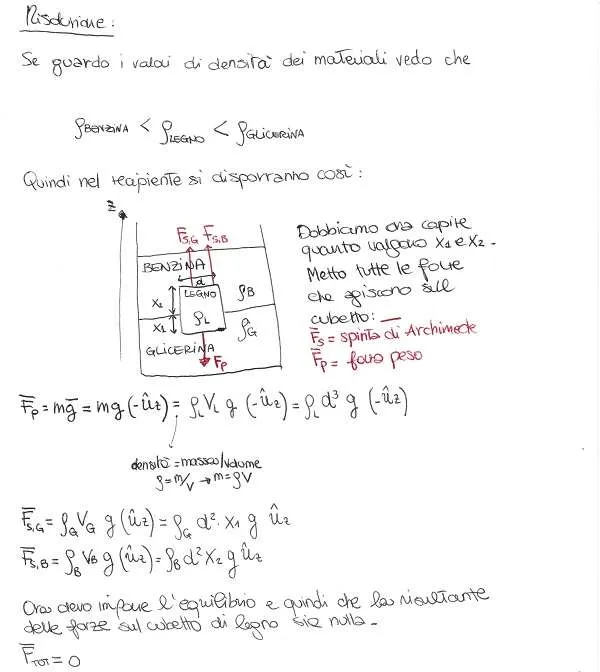 Risoluzione:
Se guardo i valori di densità dei materiali vedo che
ρBENZINA < ρLEGNO < ρGLICERINA
Quindi nel recipiente si disporranno così:
z
F̄S,G F̄S,B
BENZINA
d
LEGNO
X2
ρB
X1
ρL
ρG
GLICERINA
F̄P
Dobbiamo ora capire
quanto valgono X1 e X2.
Metto tutte le forze
che agiscono sul
cubetto:
F̄S = spinta di Archimede
F̄P = forza peso
F̄P = mḡ = mg (-ûz) = ρL VL g (-ûz) = ρL d³ g (-ûz)
densità = massa/volume
ρ = m/V → m = ρV
F̄S,G = ρG VG g (ûz) = ρG d² · X1 g ûz
F̄S,B = ρB VB g (ûz) = ρB d² X2 g ûz
Ora devo imporre l'equilibrio e quindi che la risultante
delle forze sul cubetto di legno sia nulla.
F̄TOT = 0